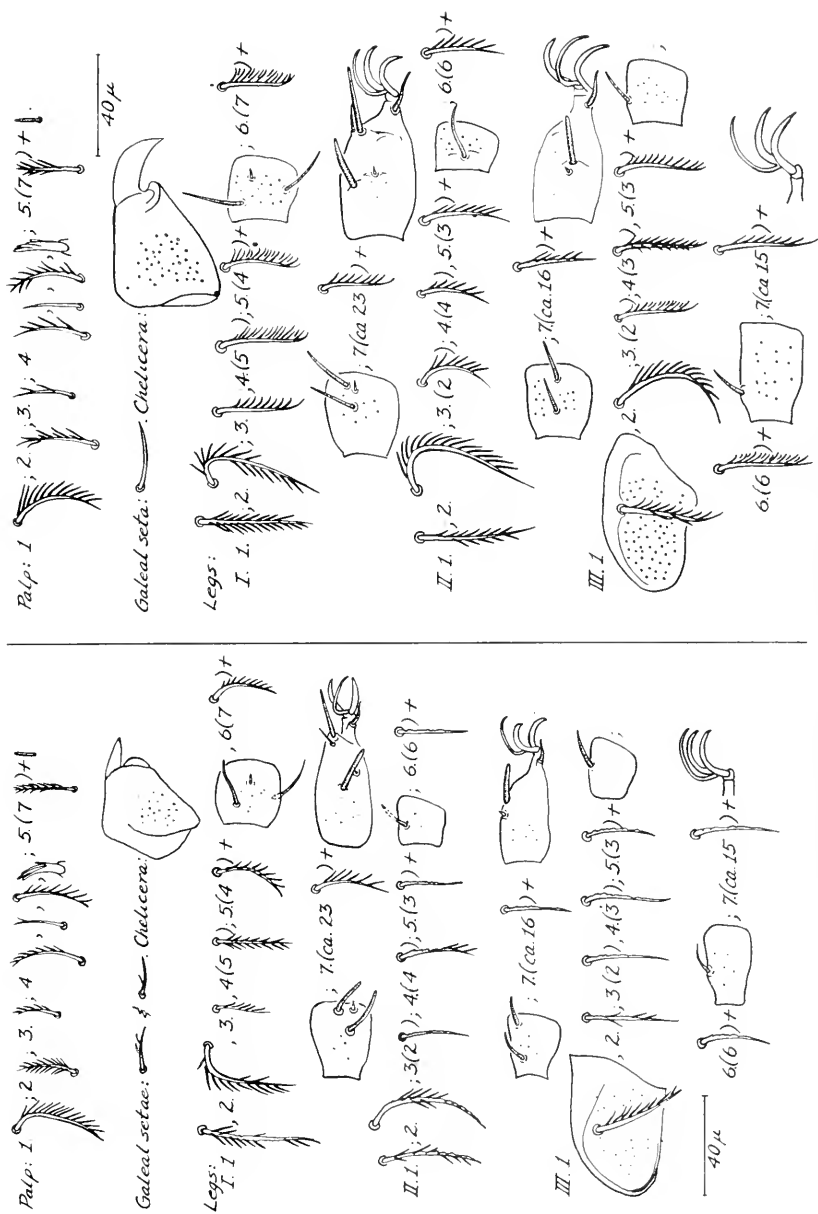 Palp: 1. ; 2 , 3. ; 4 , , ; 5.(7 )+
Galeal setae: & . Chelicera:
Legs:
I. 1 , 2. , 3. , 4(5 ); 5(4 )+ , 6(7 )+
; 7.(ca. 23 )+
II.1. ; 2. ; 3(2 ); 4.(4 ); 5.(3 )+ ; 6.(6 )+
; 7.(ca.16 )+
III.1 , 2. , 3(2 ), 4.(3 ); 5(3 )+ ;
6(6 )+ ; 7.(ca.15 )+
40 μ
Palp: 1 ; 2. , 3. ; 4 , , ; 5.(7 )+
40 μ
Galeal seta: . Chelicera:
Legs:
I. 1. , 2. ; 3. , 4.(5 ); 5.(4 )+ ; 6.(7 )+
; 7(ca 23 )+
II 1. , 2. ; 3.(2 ); 4.(4 ), 5.(3 )+ ; 6.(6 )+
; 7(ca.16 )+
III.1 , 2. , 3.(2 ); 4(3 ), 5.(3 )+ ;
6.(6 )+ ; 7(ca 15 )+